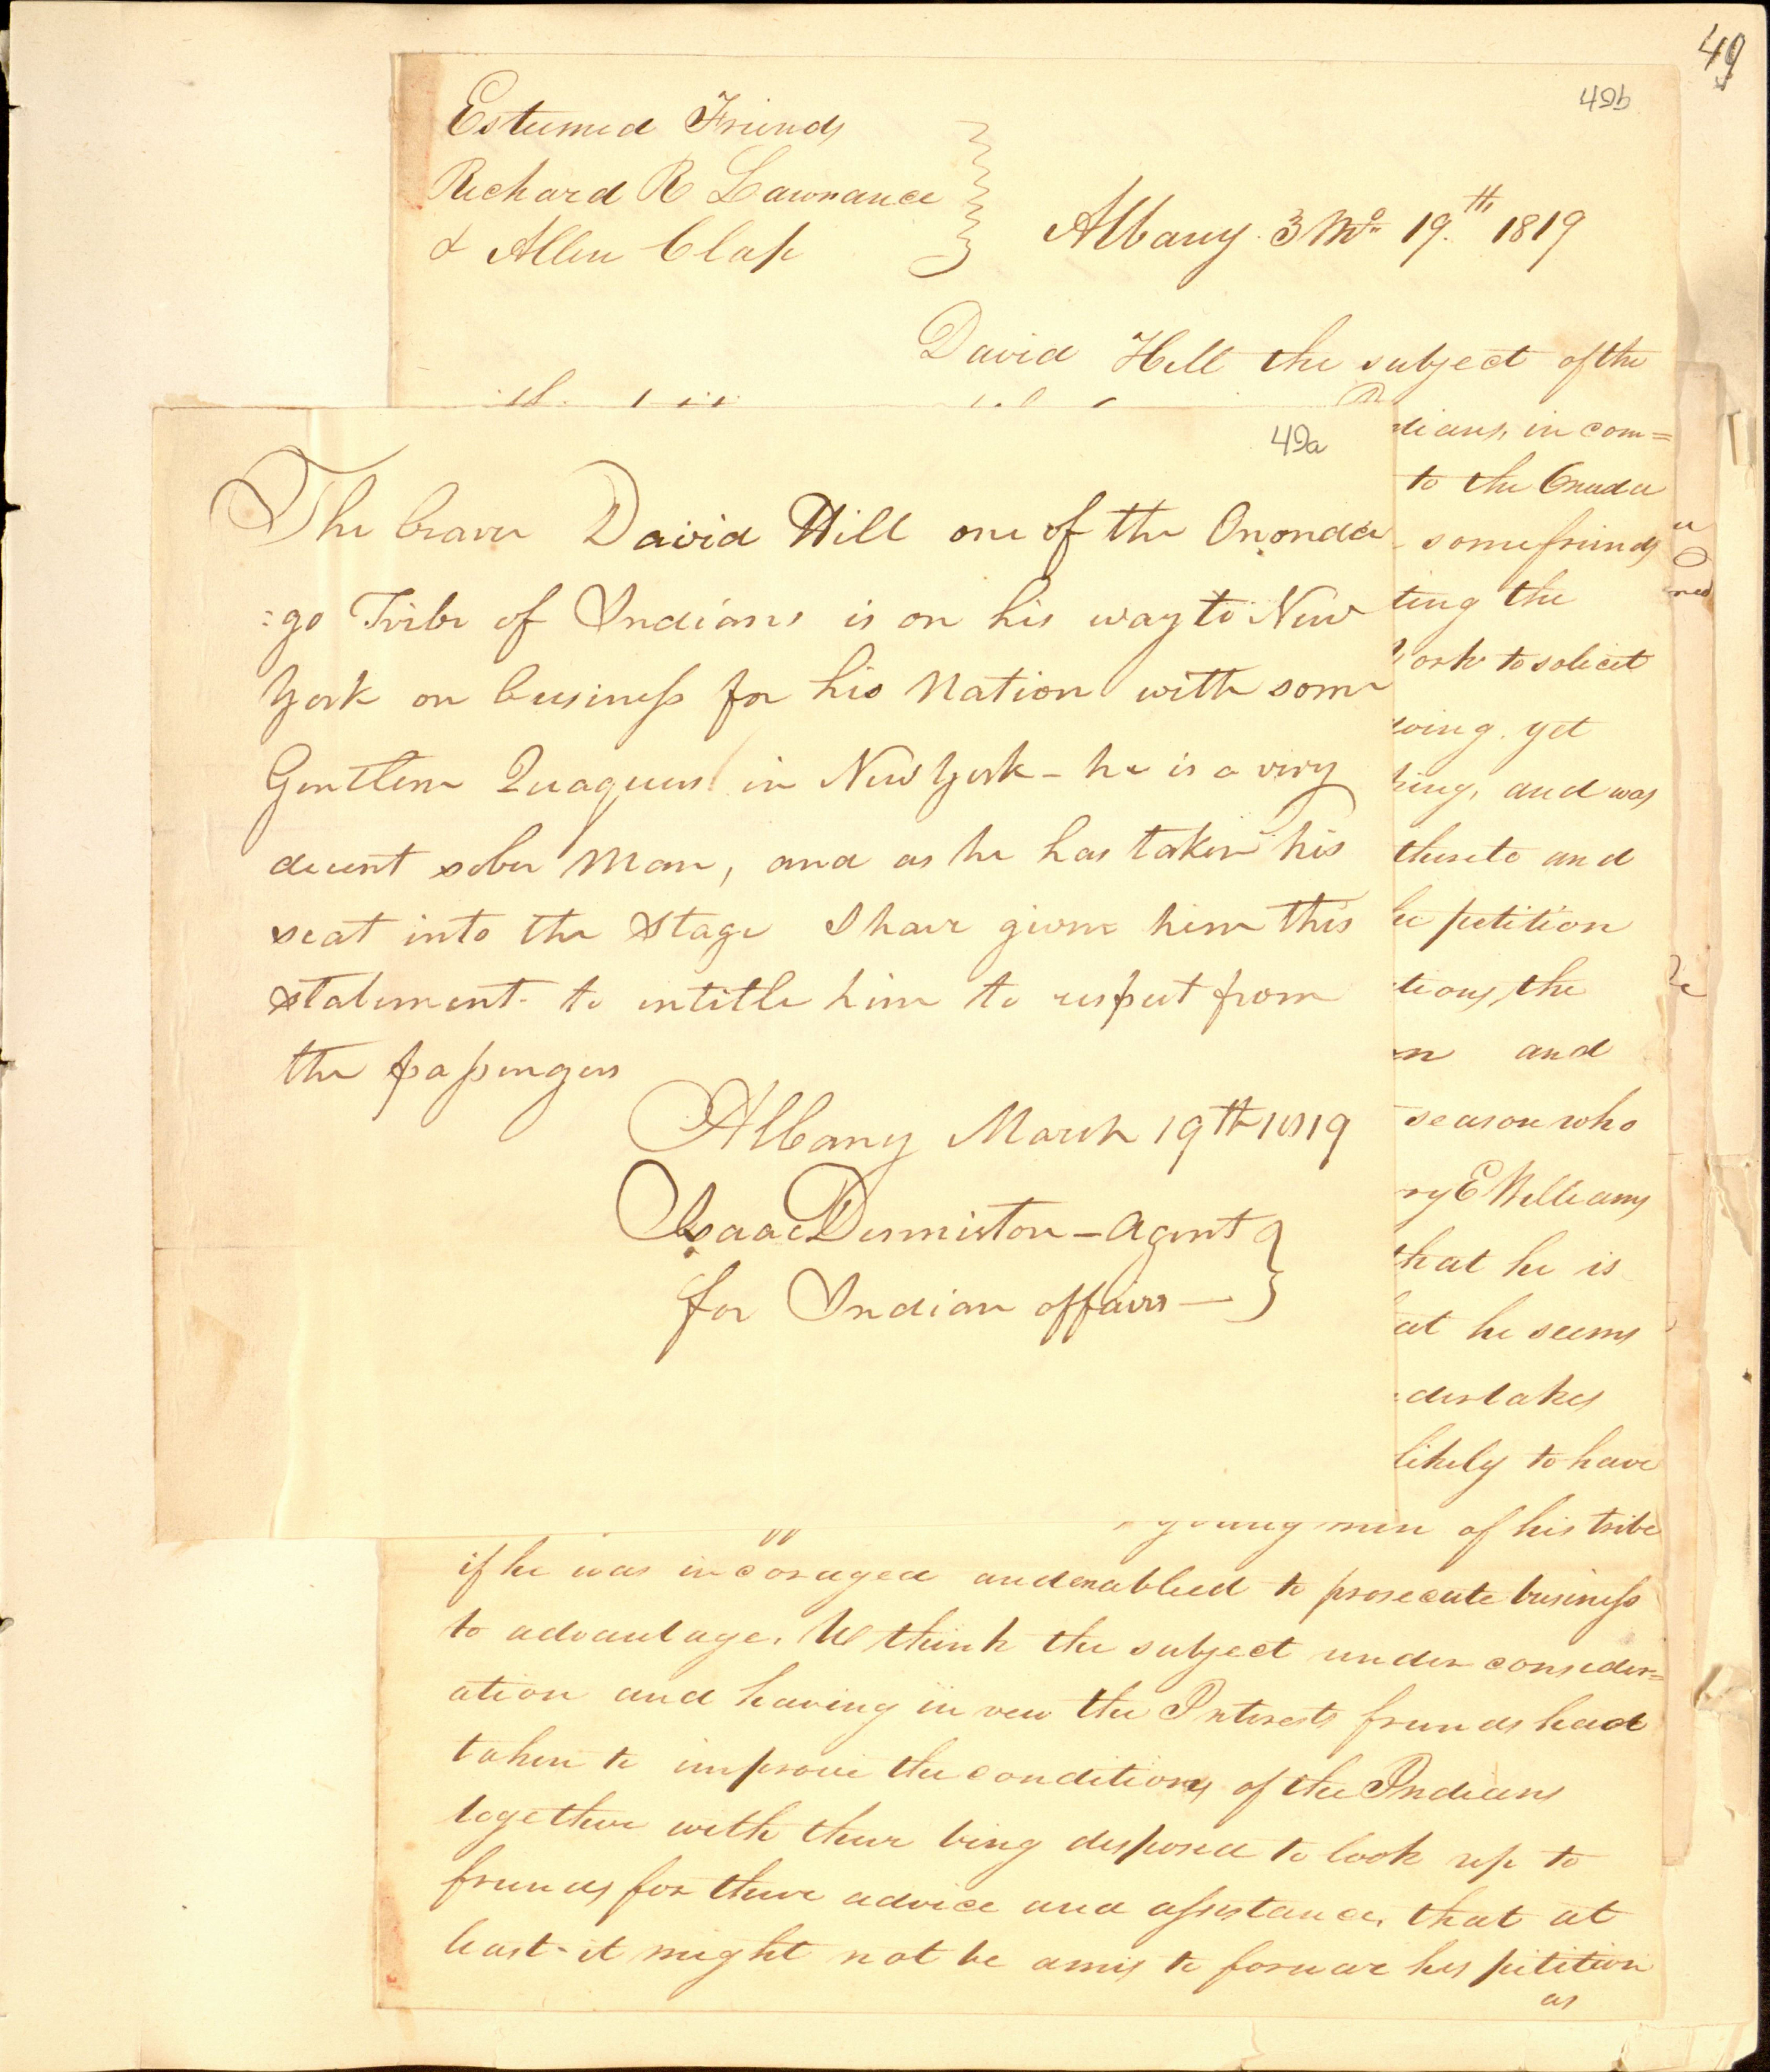 49
49b
Esteemed Friends
Richard R Lawrance
& Allen Clap
Albany 3 Mo 19th 1819
David Hill the subject of the
49a
The bearer David Hill one of the Ononda
=go Tribe of Indians is on his way to New
York on business for his Nation with some
Gentlem Quaquers in New York - he is a very
decent sober Man, and as he has taken his
seat into the Stage I have given him this
statement to intitle him to respect from
the passengers
Albany March 19th 1819
Isaac Denniston - Agent
for Indian affairs -
dians, in com=
to the Oneida
some friends
ting the
York to solicit
oing yet
hing, and was
thereto and
he petition
tions, the
and
season who
ry E Williams
that he is
at he seems
dertakes
likely to have
young men of his tribe
if he was incoraged and enableed to prosecute business
to advantage. We think the subject under consider=
ation and having in vew the Interests friends had
taken to improve the conditions of the Indians
together with their being disposed to look up to
friends for their advice and assistance, that at
least it might not be amis to forwar his petition
as